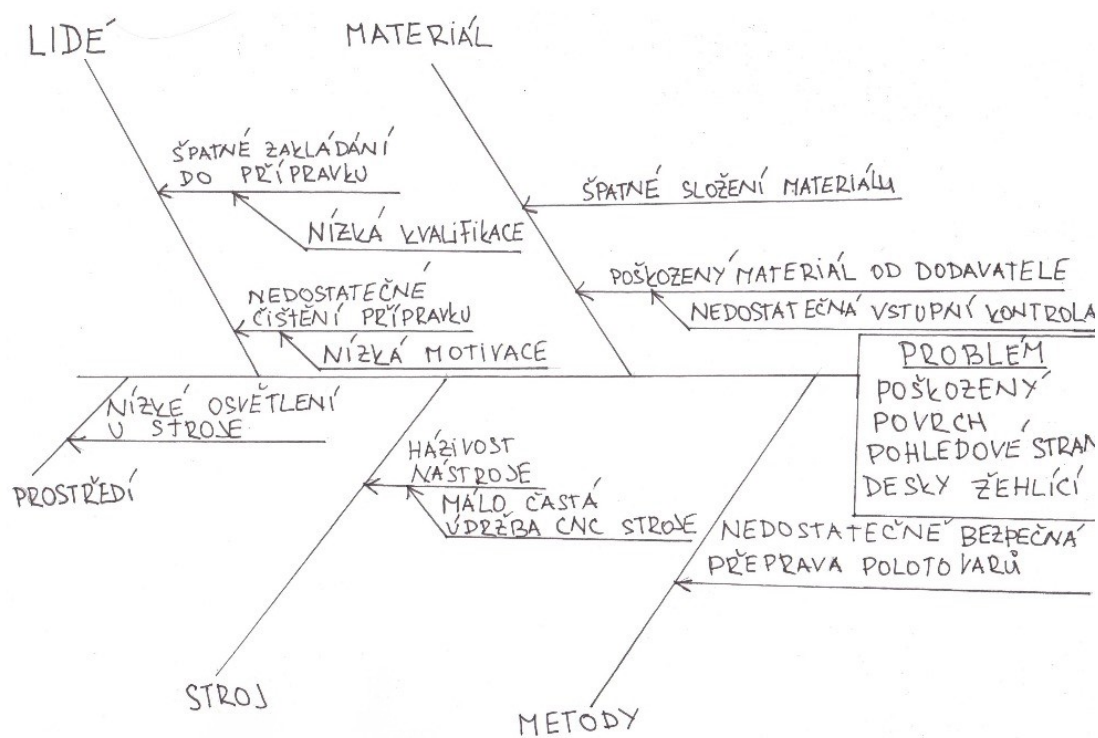 LIDÉ
MATERIÁL
ŠPATNÉ ZAKLÁDÁNÍ
DO PŘÍPRAVKU
NÍZKÁ KVALIFIKACE
NEDOSTATEČNÉ
ČIŠTĚNÍ PŘÍPRAVKU
NÍZKÁ MOTIVACE
ŠPATNÉ SLOŽENÍ MATERIÁLU
POŠKOZENÝ MATERIÁL OD DODAVATELE
NEDOSTATEČNÁ VSTUPNÍ KONTROLA
PROBLÉM
POŠKOZENÝ
POVRCH
POHLEDOVÉ STRAN
DESKY ŽEHLÍCÍ
NÍZKÉ OSVĚTLENÍ
U STROJE
PROSTŘEDÍ
HÁZIVOST
NÁSTROJE
MÁLO ČASTÁ
ÚDRŽBA CNC STROJE
STROJ
NEDOSTATEČNĚ BEZPEČNÁ
PŘEPRAVA POLOTOVARŮ
METODY